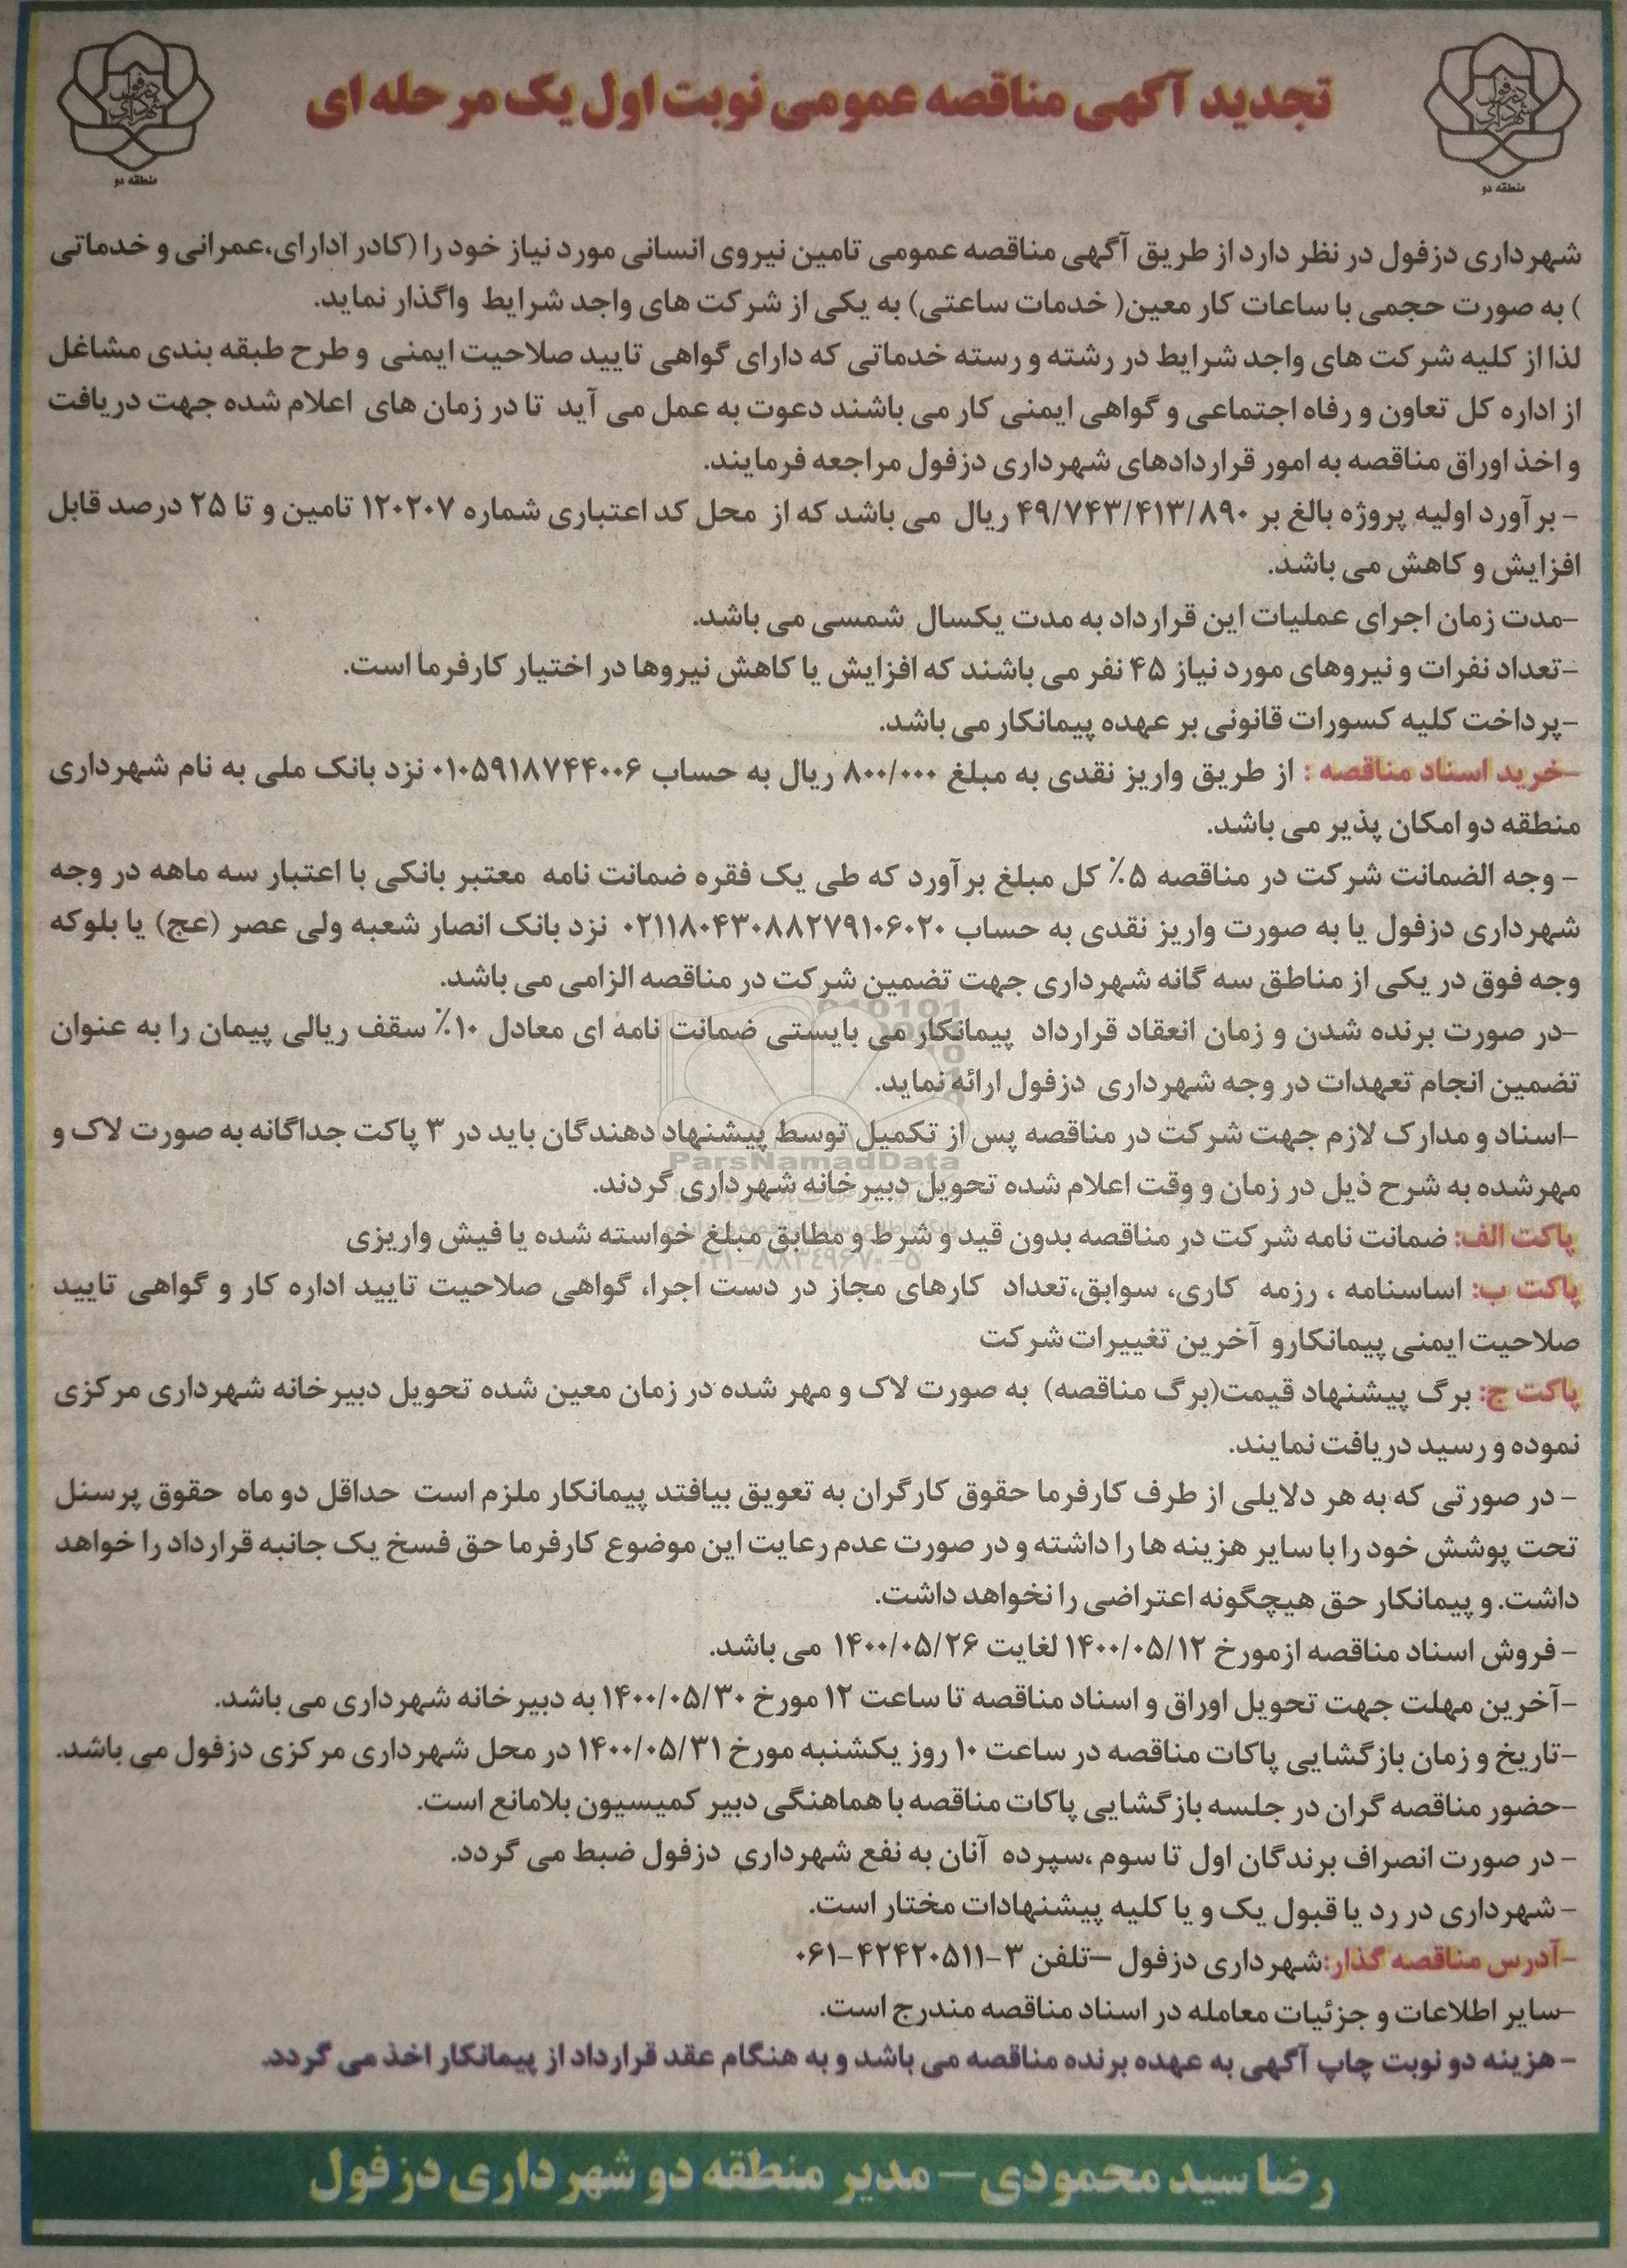 تجدید آگهی مناقصه عمومی نوبت اول یک مرحله ای
شهرداری دزفول
منطقه دو
شهرداری دزفول
منطقه دو
شهرداری دزفول در نظر دارد از طریق آگهی مناقصه عمومی تامین نیروی انسانی مورد نیاز خود را (کادر ادارای،عمرانی و خدماتی
) به صورت حجمی با ساعات کار معین( خدمات ساعتی) به یکی از شرکت های واجد شرایط واگذار نماید.
لذا از کلیه شرکت های واجد شرایط در رشته و رسته خدماتی که دارای گواهی تایید صلاحیت ایمنی و طرح طبقه بندی مشاغل
از اداره کل تعاون و رفاه اجتماعی و گواهی ایمنی کار می باشند دعوت به عمل می آید تا در زمان های اعلام شده جهت دریافت
و اخذ اوراق مناقصه به امور قراردادهای شهرداری دزفول مراجعه فرمایند.
- برآورد اولیه پروژه بالغ بر ۴۹/۷۴۳/۴۱۳/۸۹۰ ریال می باشد که از محل کد اعتباری شماره ۱۲۰۲۰۷ تامین و تا ۲۵ درصد قابل
افزایش و کاهش می باشد.
-مدت زمان اجرای عملیات این قرارداد به مدت یکسال شمسی می باشد.
-تعداد نفرات و نیروهای مورد نیاز ۴۵ نفر می باشند که افزایش یا کاهش نیروها در اختیار کارفرما است.
-پرداخت کلیه کسورات قانونی بر عهده پیمانکار می باشد.
-خرید اسناد مناقصه : از طریق واریز نقدی به مبلغ ۸۰۰/۰۰۰ ریال به حساب ۰۱۰۵۹۱۸۷۴۴۰۰۶ نزد بانک ملی به نام شهرداری
منطقه دو امکان پذیر می باشد.
- وجه الضمانت شرکت در مناقصه ۵٪ کل مبلغ برآورد که طی یک فقره ضمانت نامه معتبر بانکی با اعتبار سه ماهه در وجه
شهرداری دزفول یا به صورت واریز نقدی به حساب ۰۲۱۱۸۰۴۳۰۸۸۲۷۹۱۰۶۰۲۰ نزد بانک انصار شعبه ولی عصر (عج) یا بلوکه
وجه فوق در یکی از مناطق سه گانه شهرداری جهت تضمین شرکت در مناقصه الزامی می باشد.
-در صورت برنده شدن و زمان انعقاد قرارداد پیمانکار می بایستی ضمانت نامه ای معادل ۱۰٪ سقف ریالی پیمان را به عنوان
تضمین انجام تعهدات در وجه شهرداری دزفول ارائه نماید.
-اسناد و مدارک لازم جهت شرکت در مناقصه پس از تکمیل توسط پیشنهاد دهندگان باید در ۳ پاکت جداگانه به صورت لاک و
ParsNamadData
مهرشده به شرح ذیل در زمان و وقت اعلام شده تحویل دبیرخانه شهرداری گردند.
پاکت الف: ضمانت نامه شرکت در مناقصه بدون قید و شرط و مطابق مبلغ خواسته شده یا فیش واریزی
۰۲۱-۸۸۳۴۹۶۷۰-۵
پاکت ب: اساسنامه ، رزمه کاری، سوابق،تعداد کارهای مجاز در دست اجرا، گواهی صلاحیت تایید اداره کار و گواهی تایید
صلاحیت ایمنی پیمانکارو آخرین تغییرات شرکت
پاکت ج: برگ پیشنهاد قیمت(برگ مناقصه) به صورت لاک و مهر شده در زمان معین شده تحویل دبیرخانه شهرداری مرکزی
نموده و رسید دریافت نمایند.
- در صورتی که به هر دلایلی از طرف کارفرما حقوق کارگران به تعویق بیافتد پیمانکار ملزم است حداقل دو ماه حقوق پرسنل
تحت پوشش خود را با سایر هزینه ها را داشته و در صورت عدم رعایت این موضوع کارفرما حق فسخ یک جانبه قرارداد را خواهد
داشت. و پیمانکار حق هیچگونه اعتراضی را نخواهد داشت.
- فروش اسناد مناقصه ازمورخ ۱۴۰۰/۰۵/۱۲ لغایت ۱۴۰۰/۰۵/۲۶ می باشد.
-آخرین مهلت جهت تحویل اوراق و اسناد مناقصه تا ساعت ۱۲ مورخ ۱۴۰۰/۰۵/۳۰ به دبیرخانه شهرداری می باشد.
-تاریخ و زمان بازگشایی پاکات مناقصه در ساعت ۱۰ روز یکشنبه مورخ ۱۴۰۰/۰۵/۳۱ در محل شهرداری مرکزی دزفول می باشد.
-حضور مناقصه گران در جلسه بازگشایی پاکات مناقصه با هماهنگی دبیر کمیسیون بلامانع است.
- در صورت انصراف برندگان اول تا سوم ،سپرده آنان به نفع شهرداری دزفول ضبط می گردد.
- شهرداری در رد یا قبول یک و یا کلیه پیشنهادات مختار است.
-آدرس مناقصه گذار:شهرداری دزفول –تلفن ۳-۴۲۴۲۰۵۱۱-۰۶۱
-سایر اطلاعات و جزئیات معامله در اسناد مناقصه مندرج است.
- هزینه دو نوبت چاپ آگهی به عهده برنده مناقصه می باشد و به هنگام عقد قرارداد از پیمانکار اخذ می گردد.
رضا سید محمودی – مدیر منطقه دو شهرداری دزفول